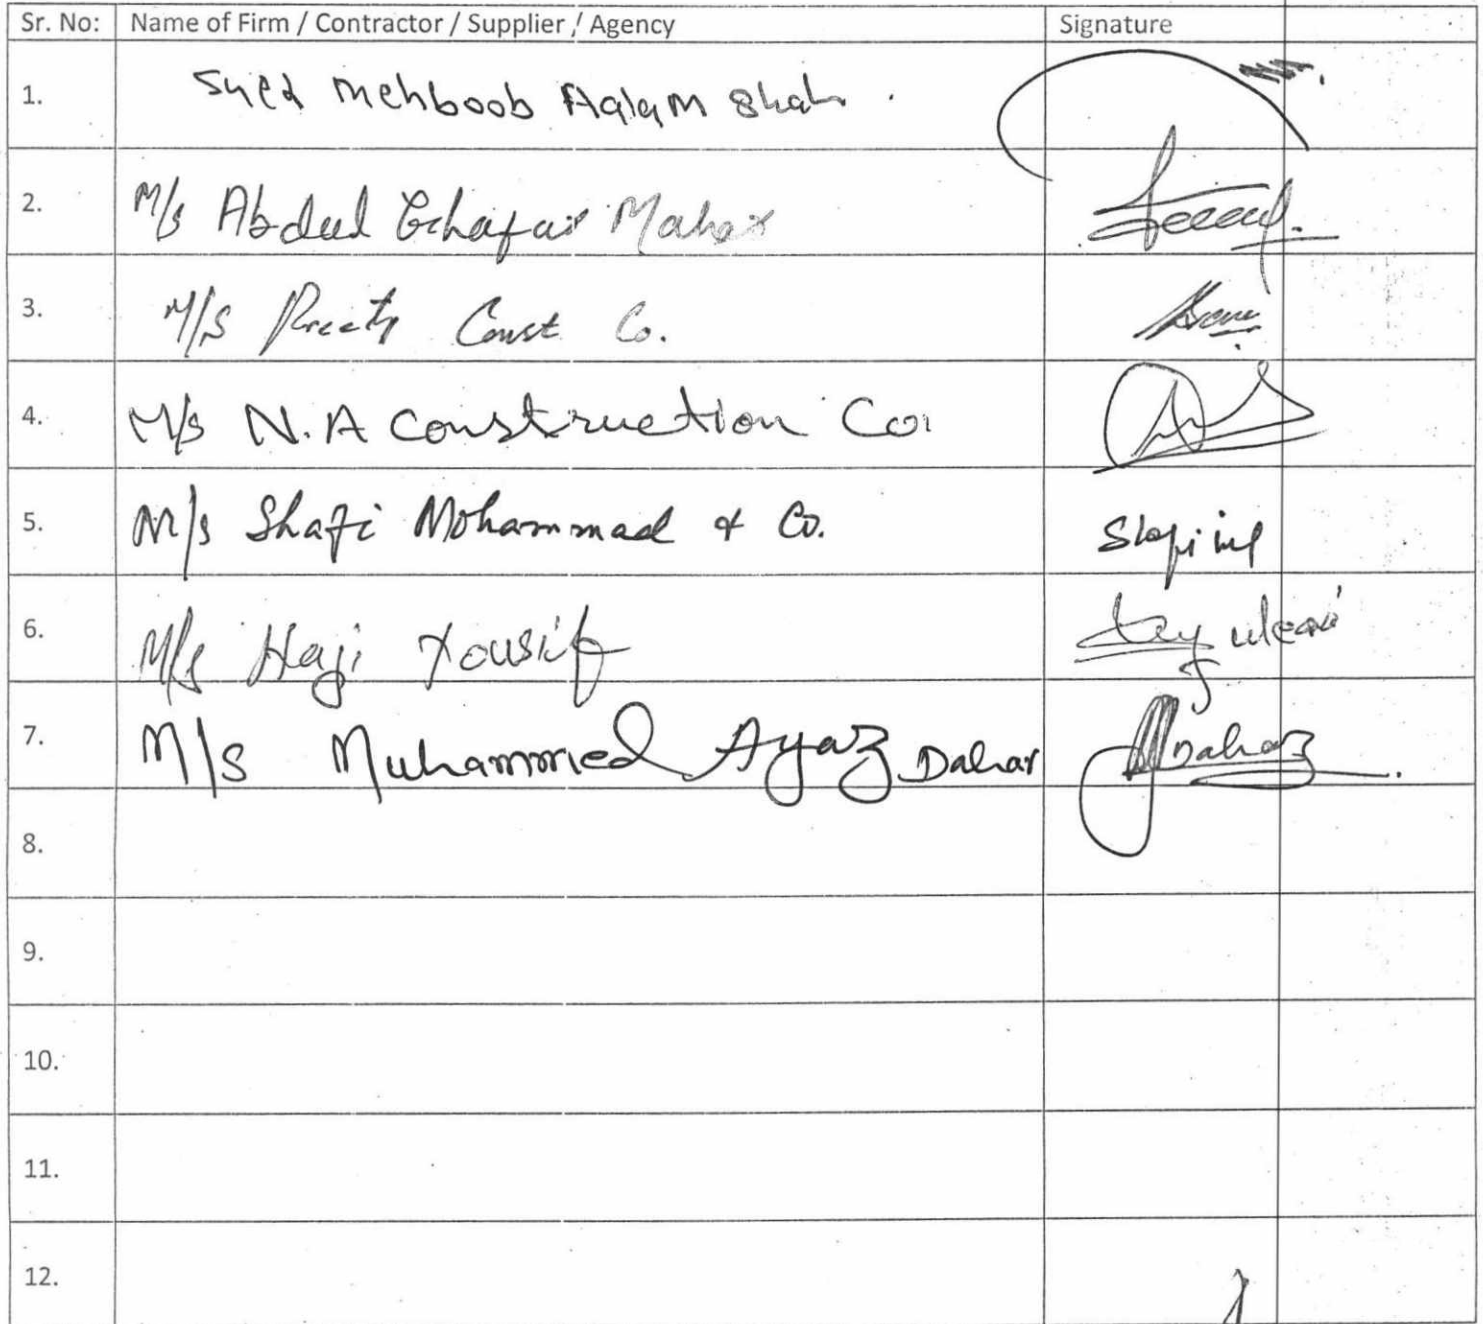 Sr. No: Name of Firm / Contractor / Supplier / Agency Signature
1. Syed Mehboob Aalam Shah .
2. M/s Abdul Ghafar Maher
3. M/S Const Co.
4. M/s N.A Construction Co.
5. M/s Shafi Mohammad & Co.
6. M/s Haji Yousif
7. M/s Muhammed Ayaz Dahar Dahar
8.
9.
10.
11.
12.